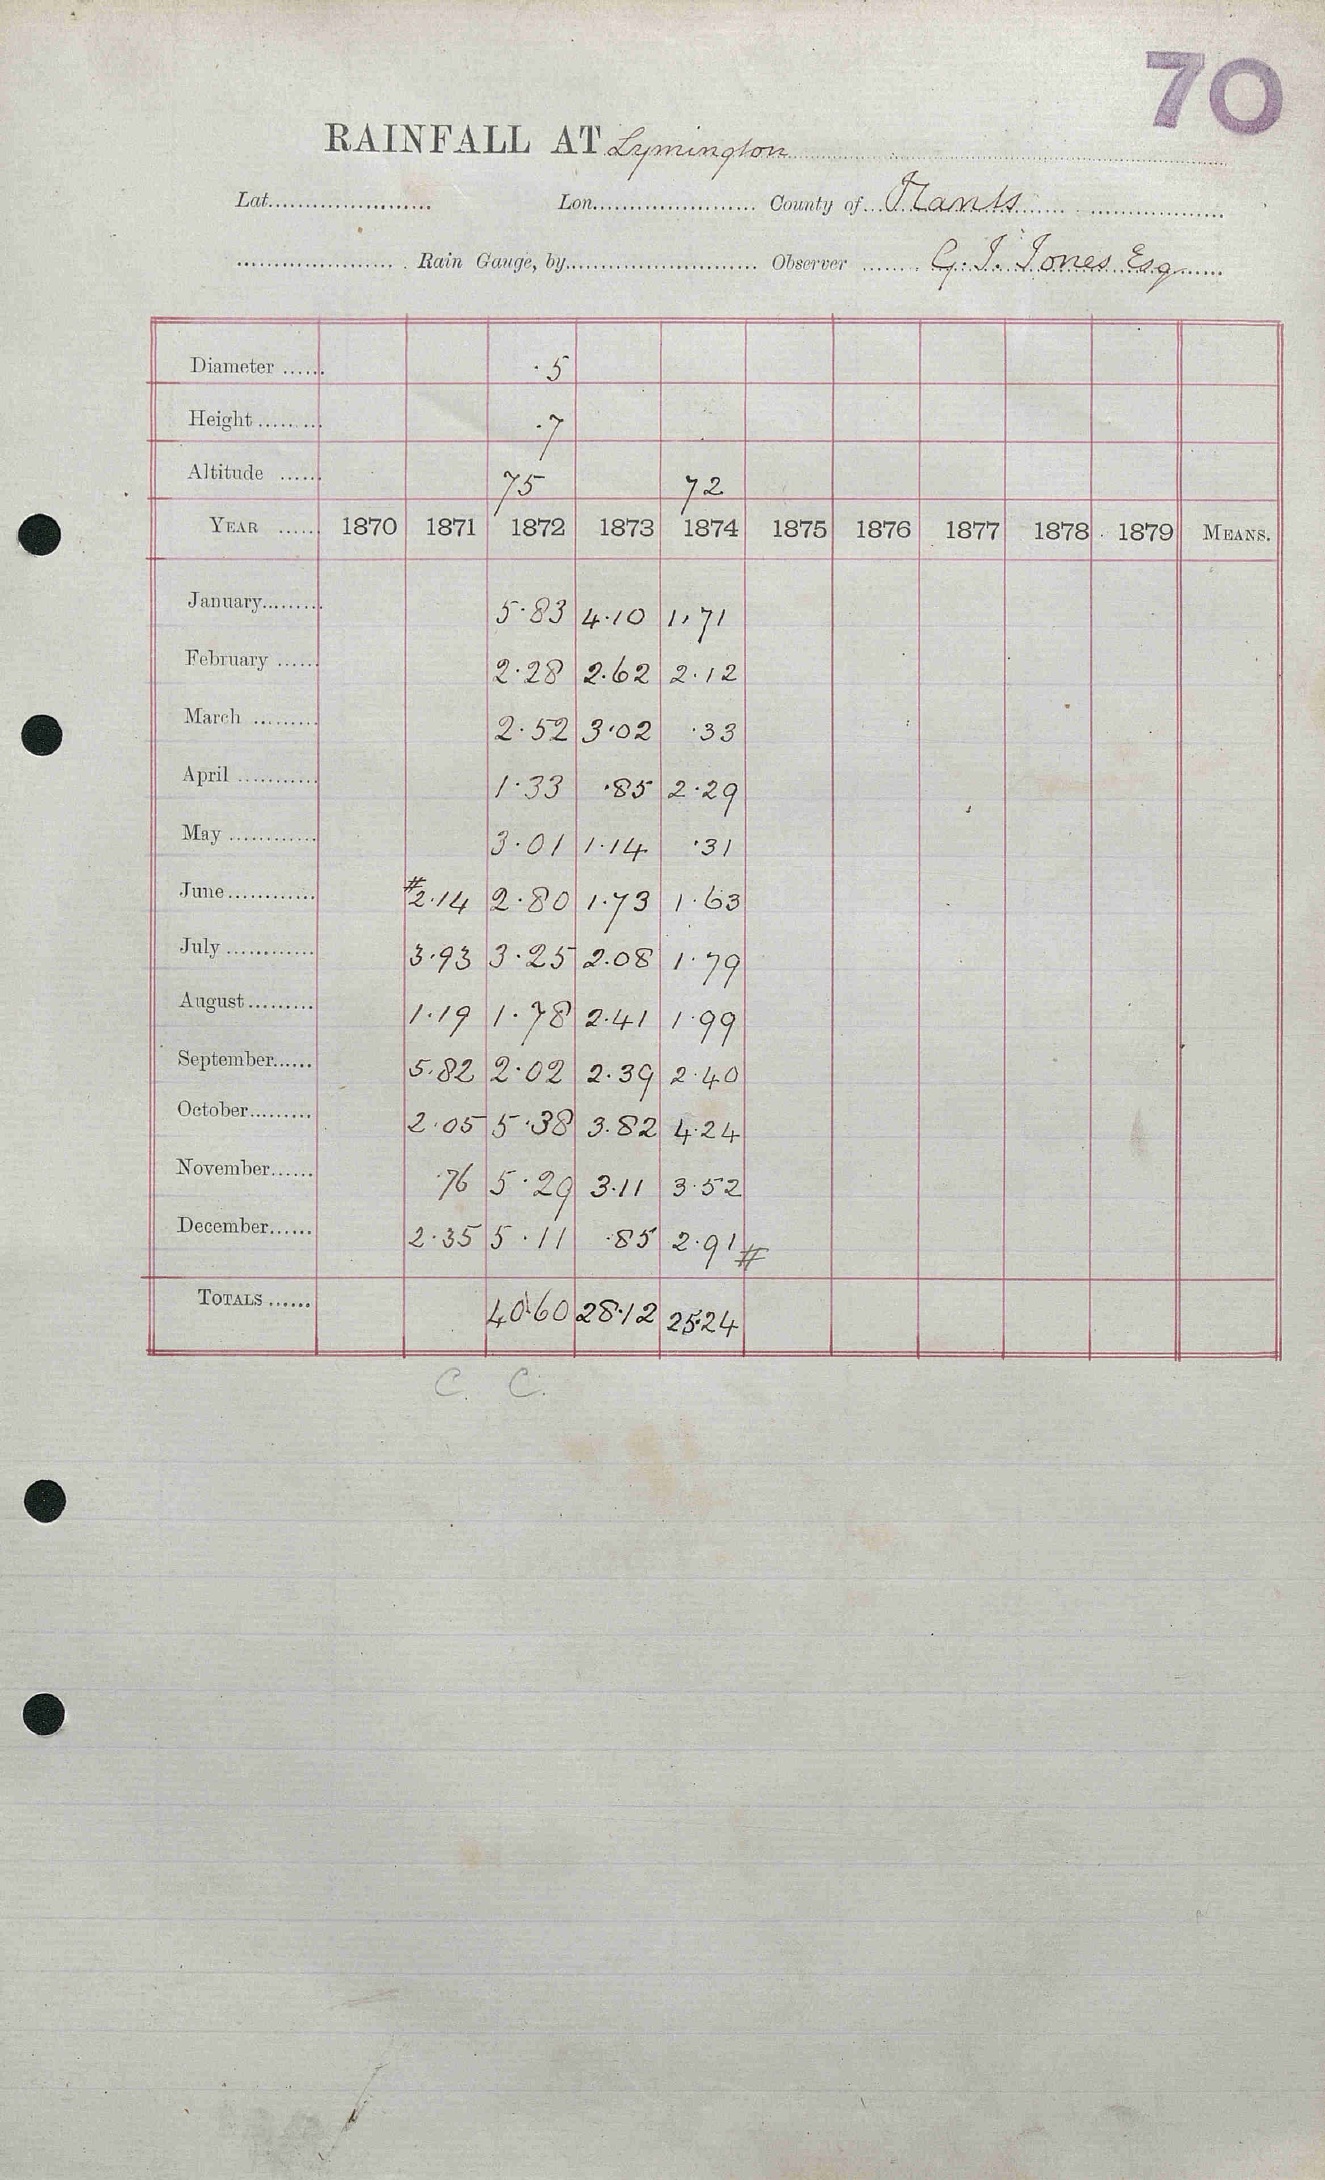 70
RAINFALL AT Lymington
Lat. Lon. County of Hants
Rain Gauge, by Observer G. J. Jones Esq
Diameter ·5
Height ·7
Altitude 75 72
YEAR 1870 1871 1872 1873 1874 1875 1876 1877 1878 1879 MEANS.
January 5·83 4·10 1·71
February 2·28 2·62 2·12
March 2·52 3·02 ·33
April 1·33 ·85 2·29
May 3·01 1·14 ·31
June #2·14 2·80 1·73 1·63
July 3·93 3·25 2·08 1·79
August 1·19 1·78 2·41 1·99
September 5·82 2·02 2·39 2·40
October 2·05 5·38 3·82 4·24
November ·76 5·29 3·11 3·52
December 2·35 5·11 ·85 2·91#
TOTALS 40·60 28·12 25·24
C. C.